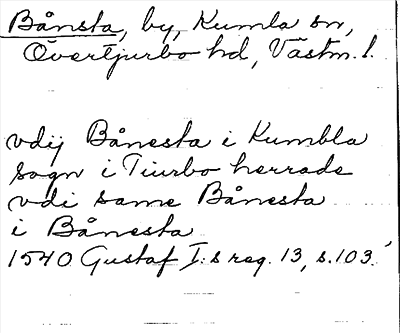 Bånsta, by, Kumla sn,
Övertjurbo hd, Västm. l.
vdij Bånesta i Kumbla
sogn i Tiurbo herrade
vdi same Bånesta
i Bånesta
1540 Gustaf I:s reg. 13, s. 103.